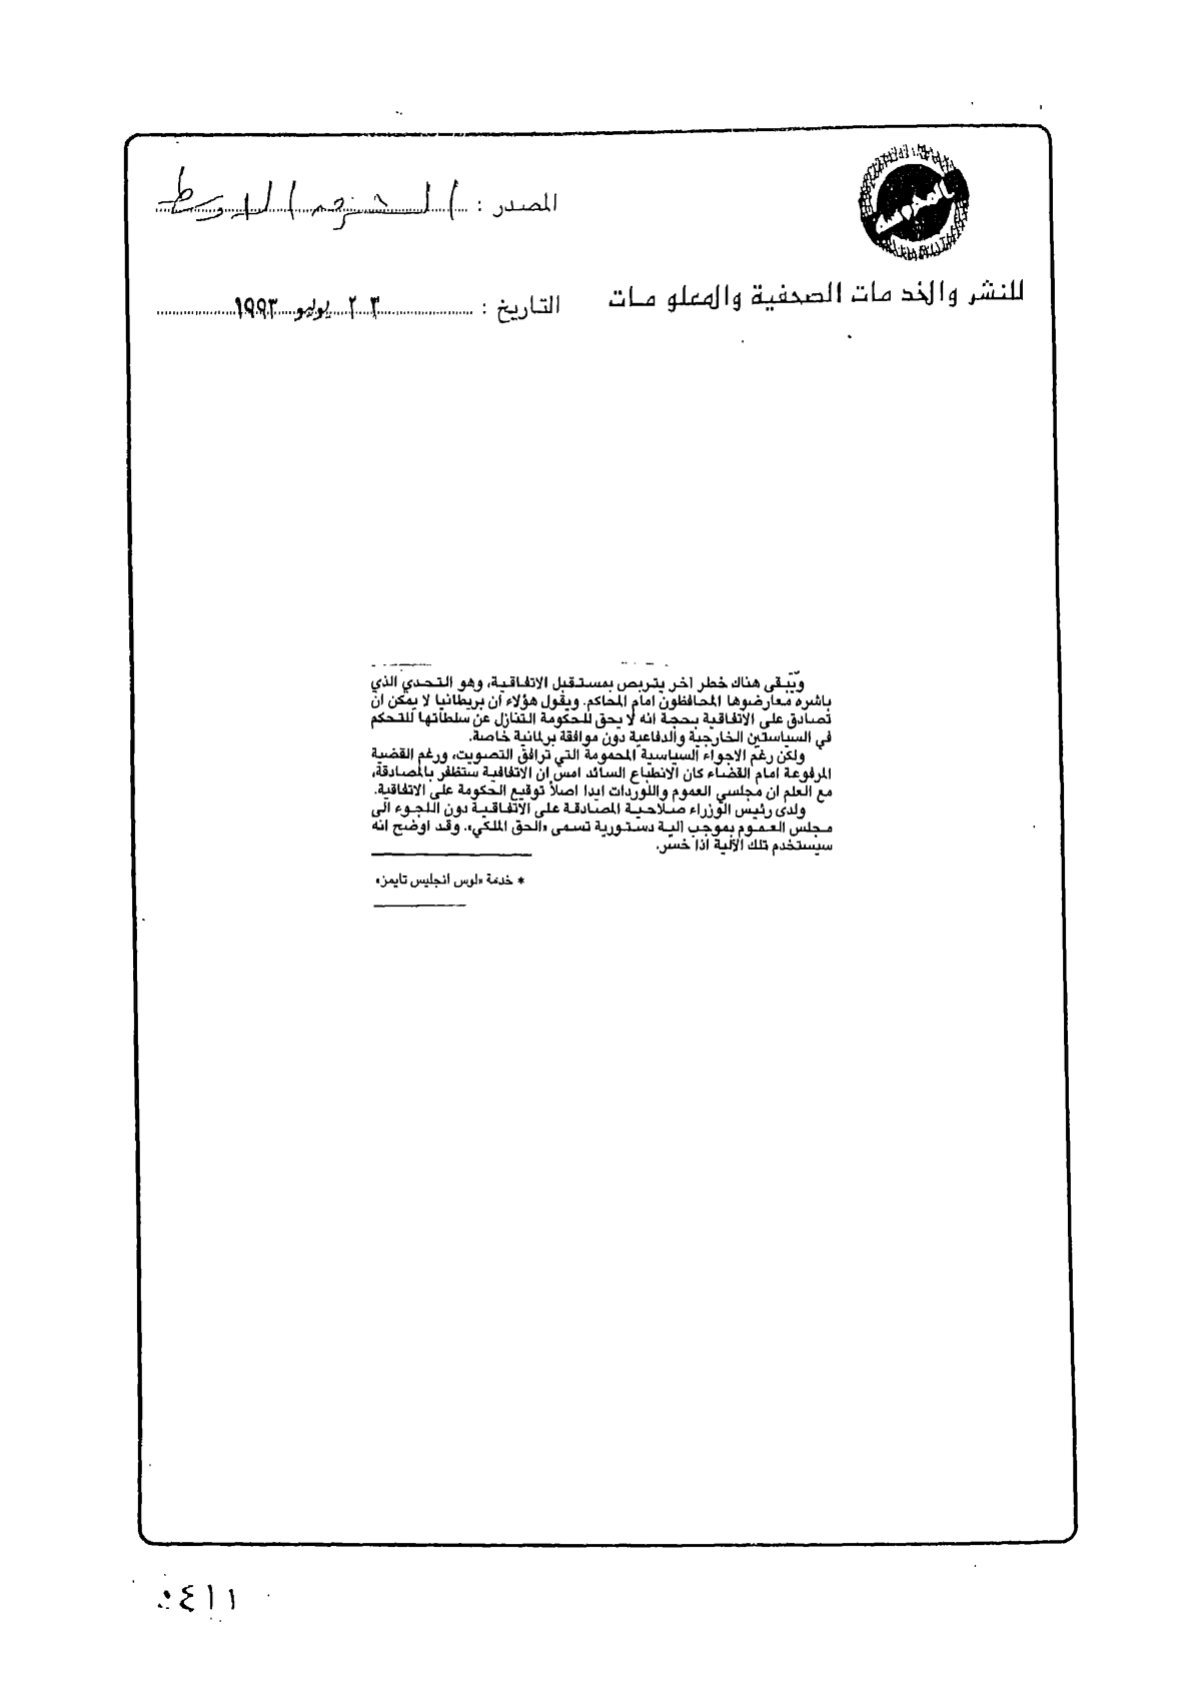 المصدر : الشرق الاوسط
للنشر والخدمات الصحفية والمعلومات
التاريخ : ٢٣ يوليو ١٩٩٣
ويبقى هناك خطر اخر يتربص بمستقبل الاتفاقية، وهو التحدي الذي
باشره معارضوها المحافظون امام المحاكم. ويقول هؤلاء أن بريطانيا لا يمكن ان
تصادق على الاتفاقية بحجة انه لا يحق للحكومة التنازل عن سلطاتها للتحكم
في السياستين الخارجية والدفاعية دون موافقة برلمانية خاصة.
ولكن رغم الاجواء السياسية المحمومة التي ترافق التصويت، ورغم القضية
المرفوعة امام القضاء كان الانطباع السائد امس ان الاتفاقية ستظفر بالمصادقة،
مع العلم ان مجلسي العموم واللوردات ايدا اصلاً توقيع الحكومة على الاتفاقية.
ولدى رئيس الوزراء صلاحية المصادقة على الاتفاقية دون اللجوء الى
مجلس العموم بموجب الية دستورية تسمى «الحق الملكي». وقد اوضح انه
سيستخدم تلك الآلية اذا خسر.
* خدمة «لوس انجليس تايمز»